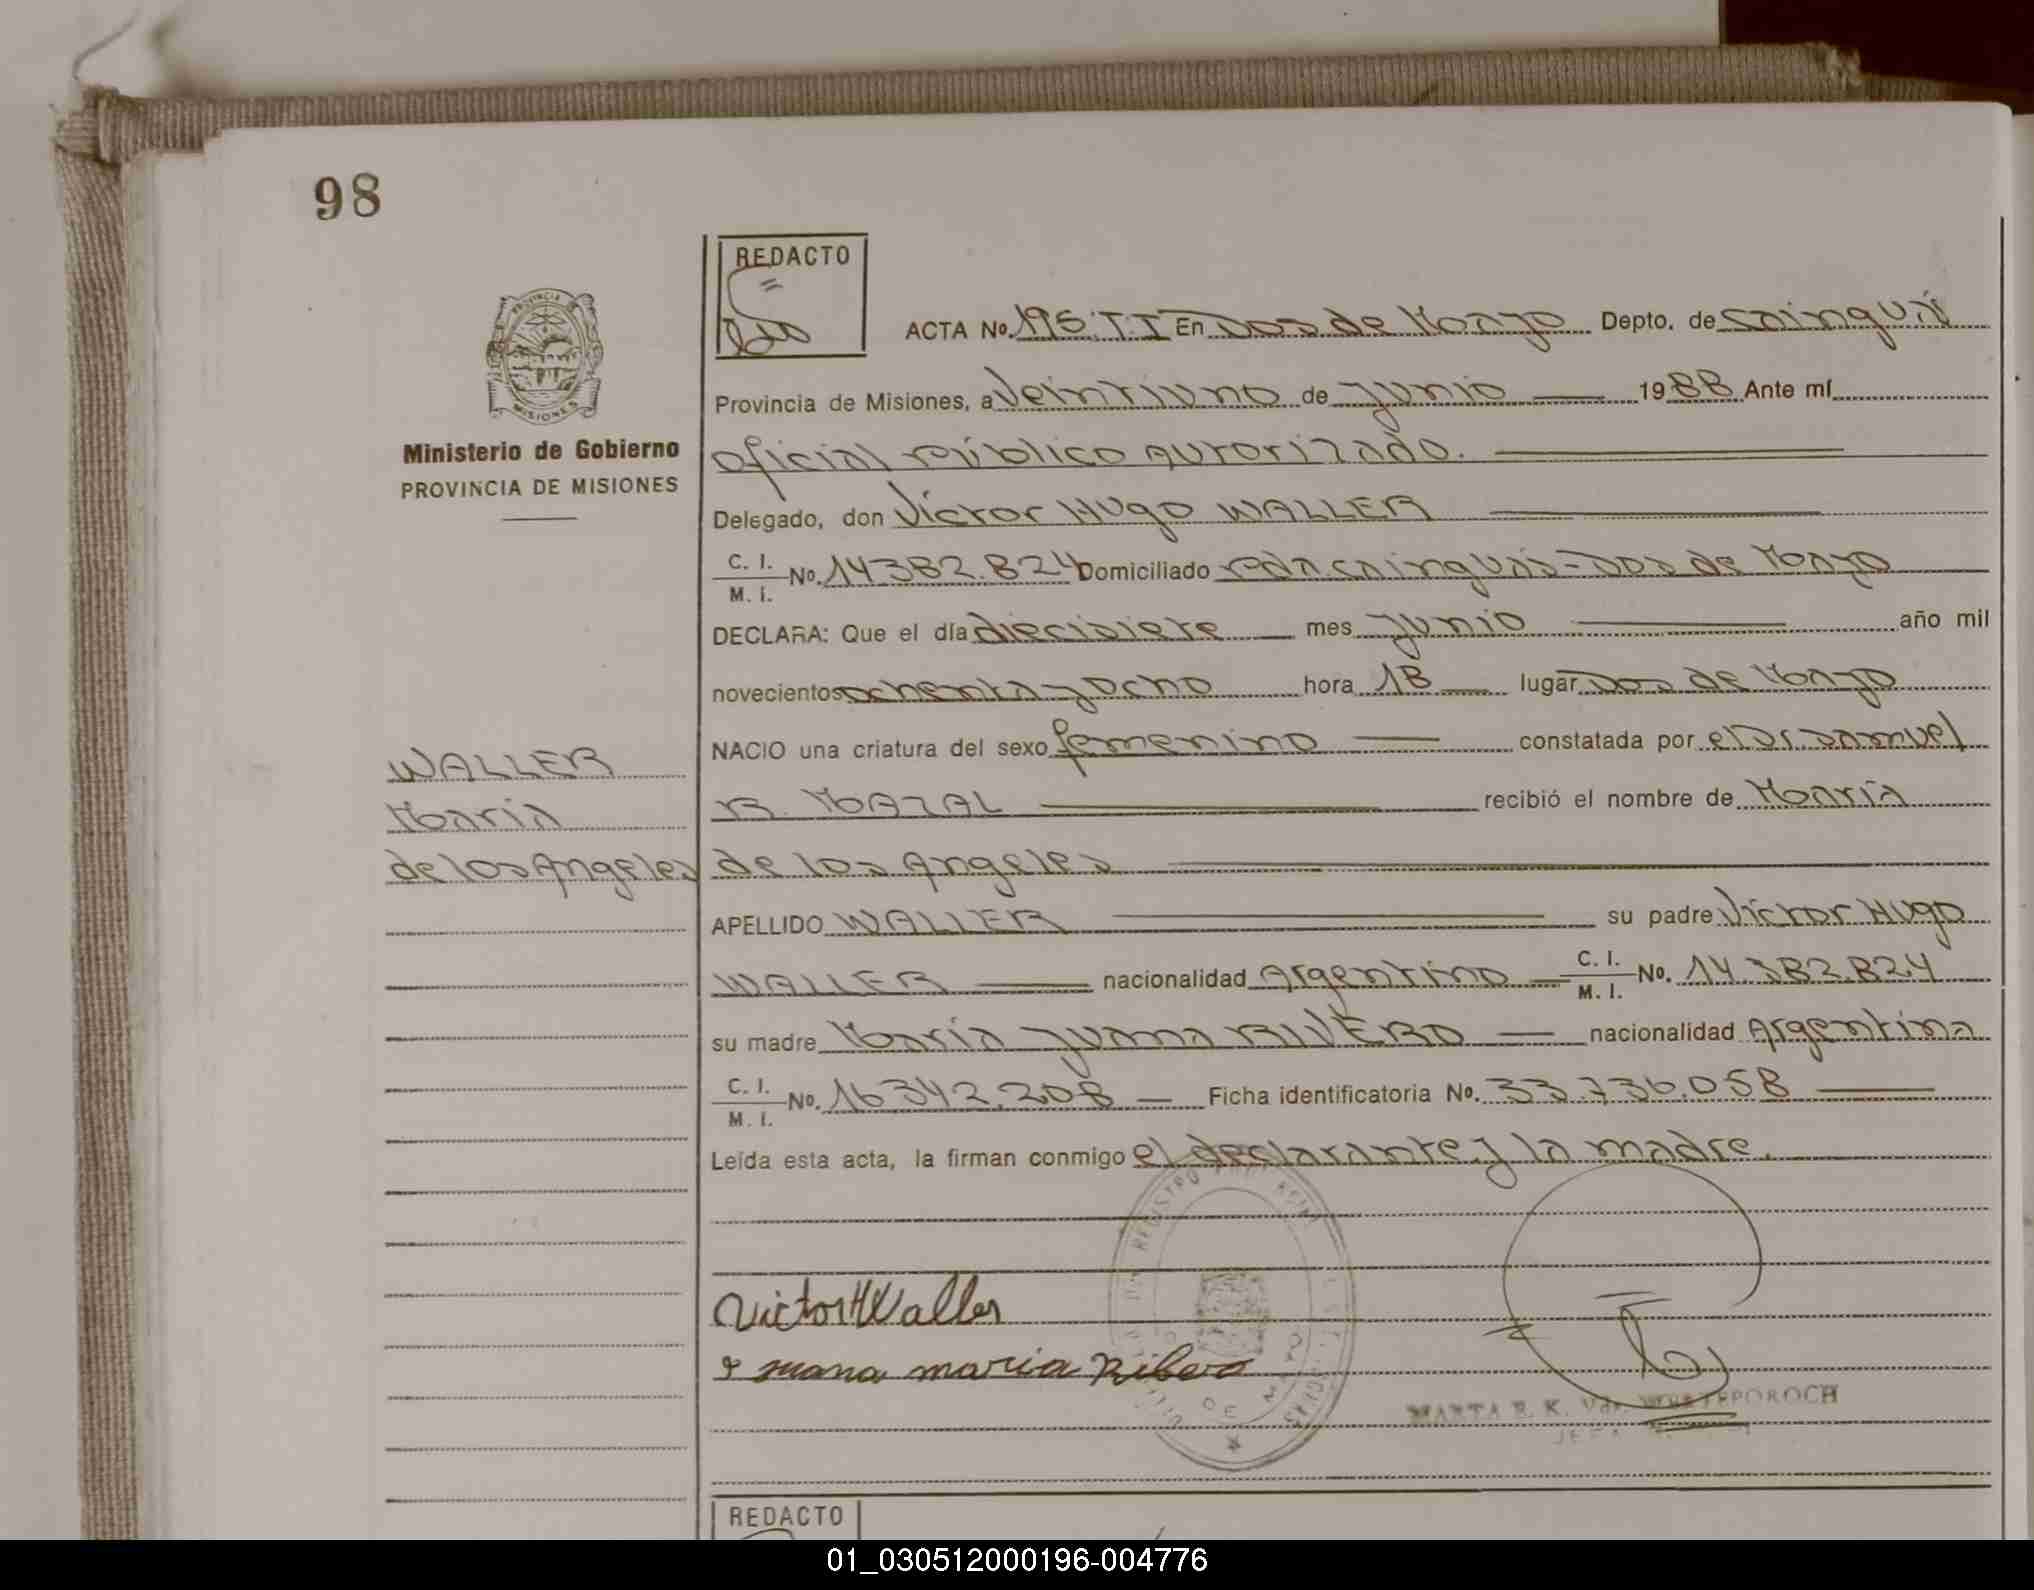 98
REDACTO
ACTA No. 195. T. I En Dos de Mayo Depto. de Cainguás
PROVINCIA DE MISIONES
Provincia de Misiones, a Veintiuno de Junio 1988 Ante mí
Ministerio de Gobierno
PROVINCIA DE MISIONES
oficial público autorizado.
Delegado, don Víctor Hugo WALLER
C. I. M. I. No. 14382.824 Domiciliado Pcia Cainguás-Dos de Mayo
DECLARA: Que el día diecisiete mes Junio año mil
novecientos ochenta y ocho hora 18 lugar Dos de Mayo
NACIO una criatura del sexo femenino constatada por el Dr. Samuel
WALLER
R. MAZAL recibió el nombre de María
María
de los Angeles
de los Angeles
APELLIDO WALLER su padre Víctor Hugo
WALLER nacionalidad Argentino C. I. M. I. No. 14.382.824
su madre María Juana RIVERO nacionalidad Argentina
C. I. M. I. No. 16342.208 Ficha identificatoria No. 33.736.058
Leída esta acta, la firman conmigo el declarante y la madre.
Victor H Waller
Juana maria Ribero
REGISTRO DE DE MAYO
MARTA E. K. Vda.
JEFA
REDACTO
01_030512000196-004776